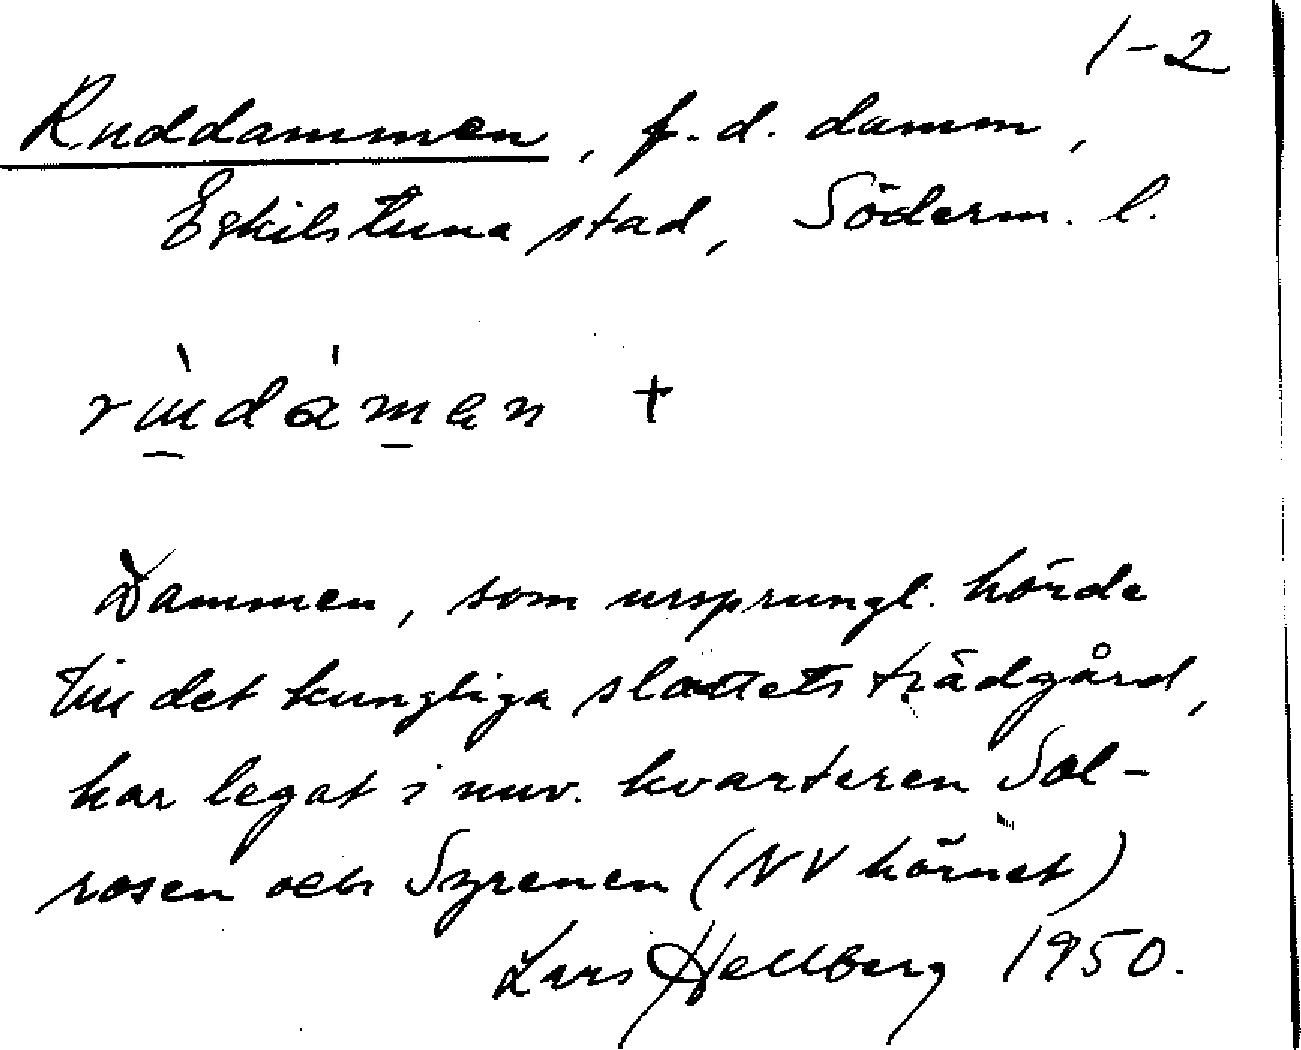 1-2
Ruddammen, f.d. damm,
Eskilstuna stad, Söderm. l.
+
Dammen, som ursprungl. hörde
till det kungliga slottets trädgård,
har legat i nuv. kvarteren Sol-
rosen och Syrenen (NV hörnet)
Lars Hellberg 1950.